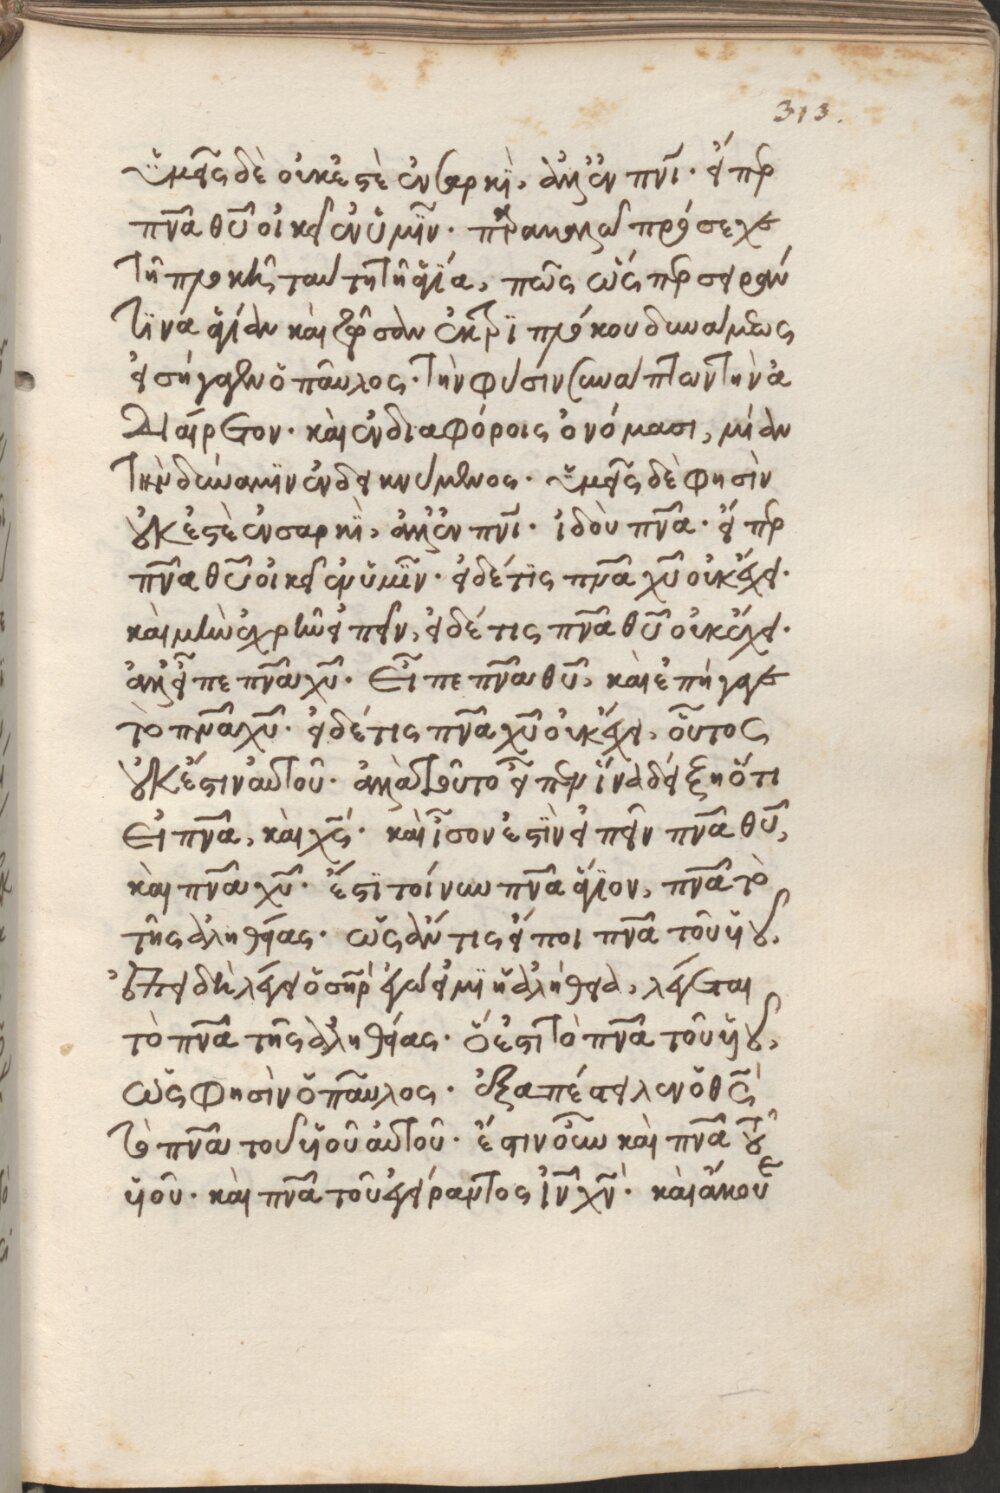 313.
ὑμεῖς δὲ οὐκ ἐστὲ ἐν σαρκὶ, ἀλλ' ἐν πνι. εἴπερ
πνα θυ οἰκεῖ ἐν ὑμῖν. παρακαλῶ πρόσεχε
τῇ προκειμένῃ ταύτῃ τῇ ἁγίᾳ, πῶς ὡς περ
τινα ἁγίαν καὶ ἐκ
εἰσήγαγεν ὁ παῦλος. τὴν φύσιν συνάπτων τὴν ἀ
διαίρετον. καὶ ἐν διαφόροις ὀνόμασι, μίαν
τὴν δύναμιν ἐνδεικνύμενος. ὑμεῖς δὲ φησὶν
οὐκ ἐστὲ ἐν σαρκὶ, ἀλλ' ἐν πνι. ἰδοὺ πνα. εἴπερ
πνα θυ οἰκεῖ ἐν ὑμῖν. εἰ δέ τις πνα χυ οὐκ ἔχει.
καὶ μὴν ἐχρῆν εἰπεῖν, εἰ δέ τις πνα θυ οὐκ ἔχει.
ἀλλ' εἶπε πνα χυ. εἶπε πνα θυ, καὶ ἐπήγαγε
τὸ πνα χυ. εἰ δέ τις πνα χυ οὐκ ἔχει, οὗτος
οὐκ ἔστιν αὐτοῦ. ἀλλὰ τοῦτο εἶπεν ἵνα δείξῃ ὅτι
εἰ πνα, καὶ χς. καὶ ἴσον ἐστὶν εἰπεῖν πνα θυ,
καὶ πνα χυ. ἔστι τοίνυν πνα ἅγιον, πνα τὸ
τῆς ἀληθείας. ὡς ἄν τις εἴποι πνα τοῦ υἱοῦ.
ἐπειδὴ λέγει ὁ σηρ ἐγώ εἰμι ἡ ἀλήθεια, λέγεται
τὸ πνα τῆς ἀληθείας. ὅ ἐστι τὸ πνα τοῦ υἱοῦ,
ὡς φησὶν ὁ παῦλος. ἐξαπέστειλεν ὁ θς
τὸ πνα τοῦ υἱοῦ αὐτοῦ. ἔστιν οὖν καὶ πνα τοῦ
υἱοῦ. καὶ πνα τοῦ ἐγείραντος ιν χν. καὶ ἄκουε